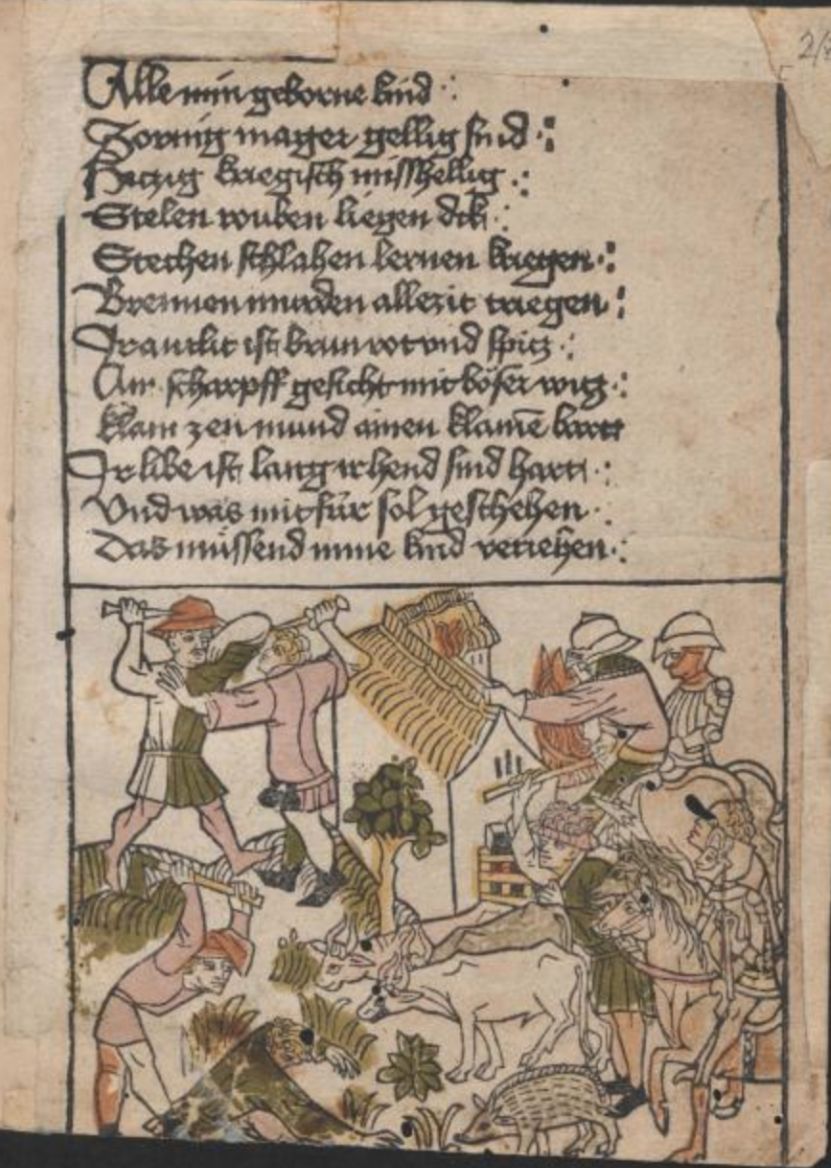 Alle min geborne kind
Zornig mager gellig sind
Hitzig kriegisch misshellig
Stelen rouben liegen dik
Stechen schlahen lernen kriegen
Brennen murden allezit triegen
Ir antlit ist brun rot vnd spitz
Ain scharpff gesicht mit böser witz
klain zen mund ainen klainē bartt
Ir libe ist lang ir hend sind hart
Vnd was mit für sol geschehen
Das müssend mine kind veriehen